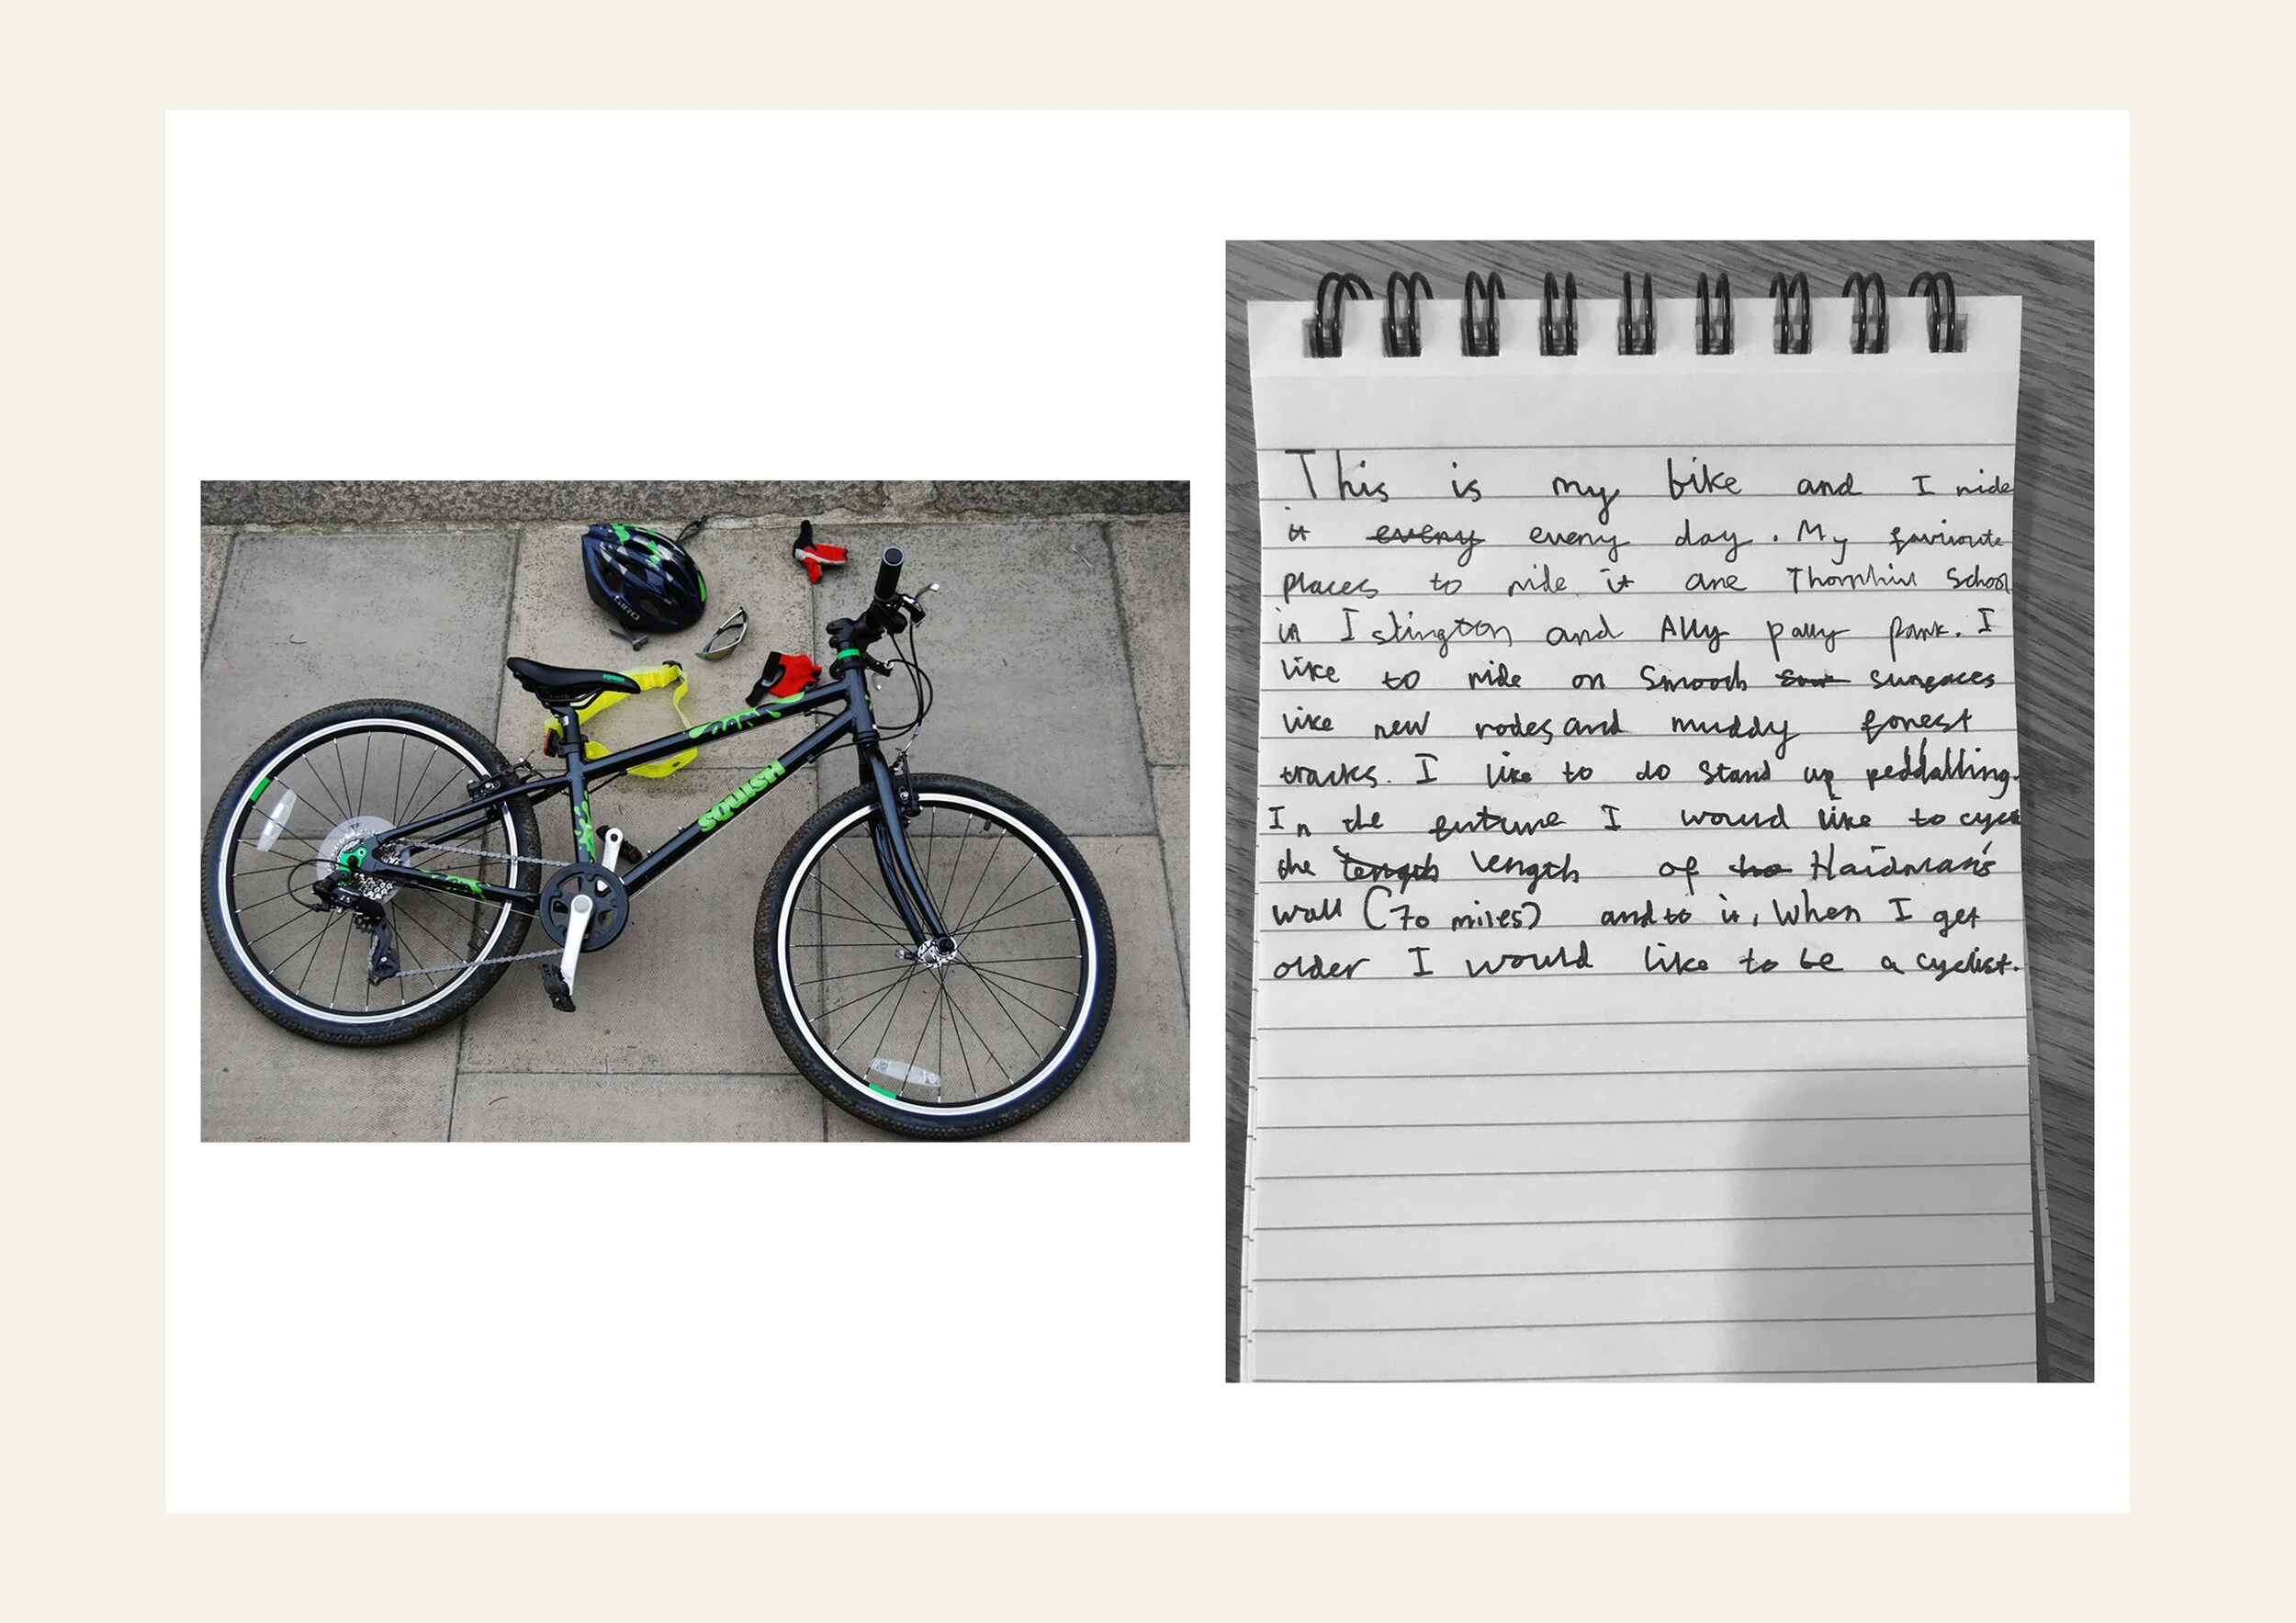 GIRO
SQUISH
SQUISH
This is my bike and I ride
it every every day. My favirioute
places to ride it are Thornhill School
in Islington and Ally pally park. I
like to ride on Smooth surfaces
like new rodes and muddy forest
tracks. I like to do Stand up peddalling.
In the future I would like to cycle
the length length of to Haidrian's
wall (70 miles) and to it, When I get
older I would like to be a cyclist.